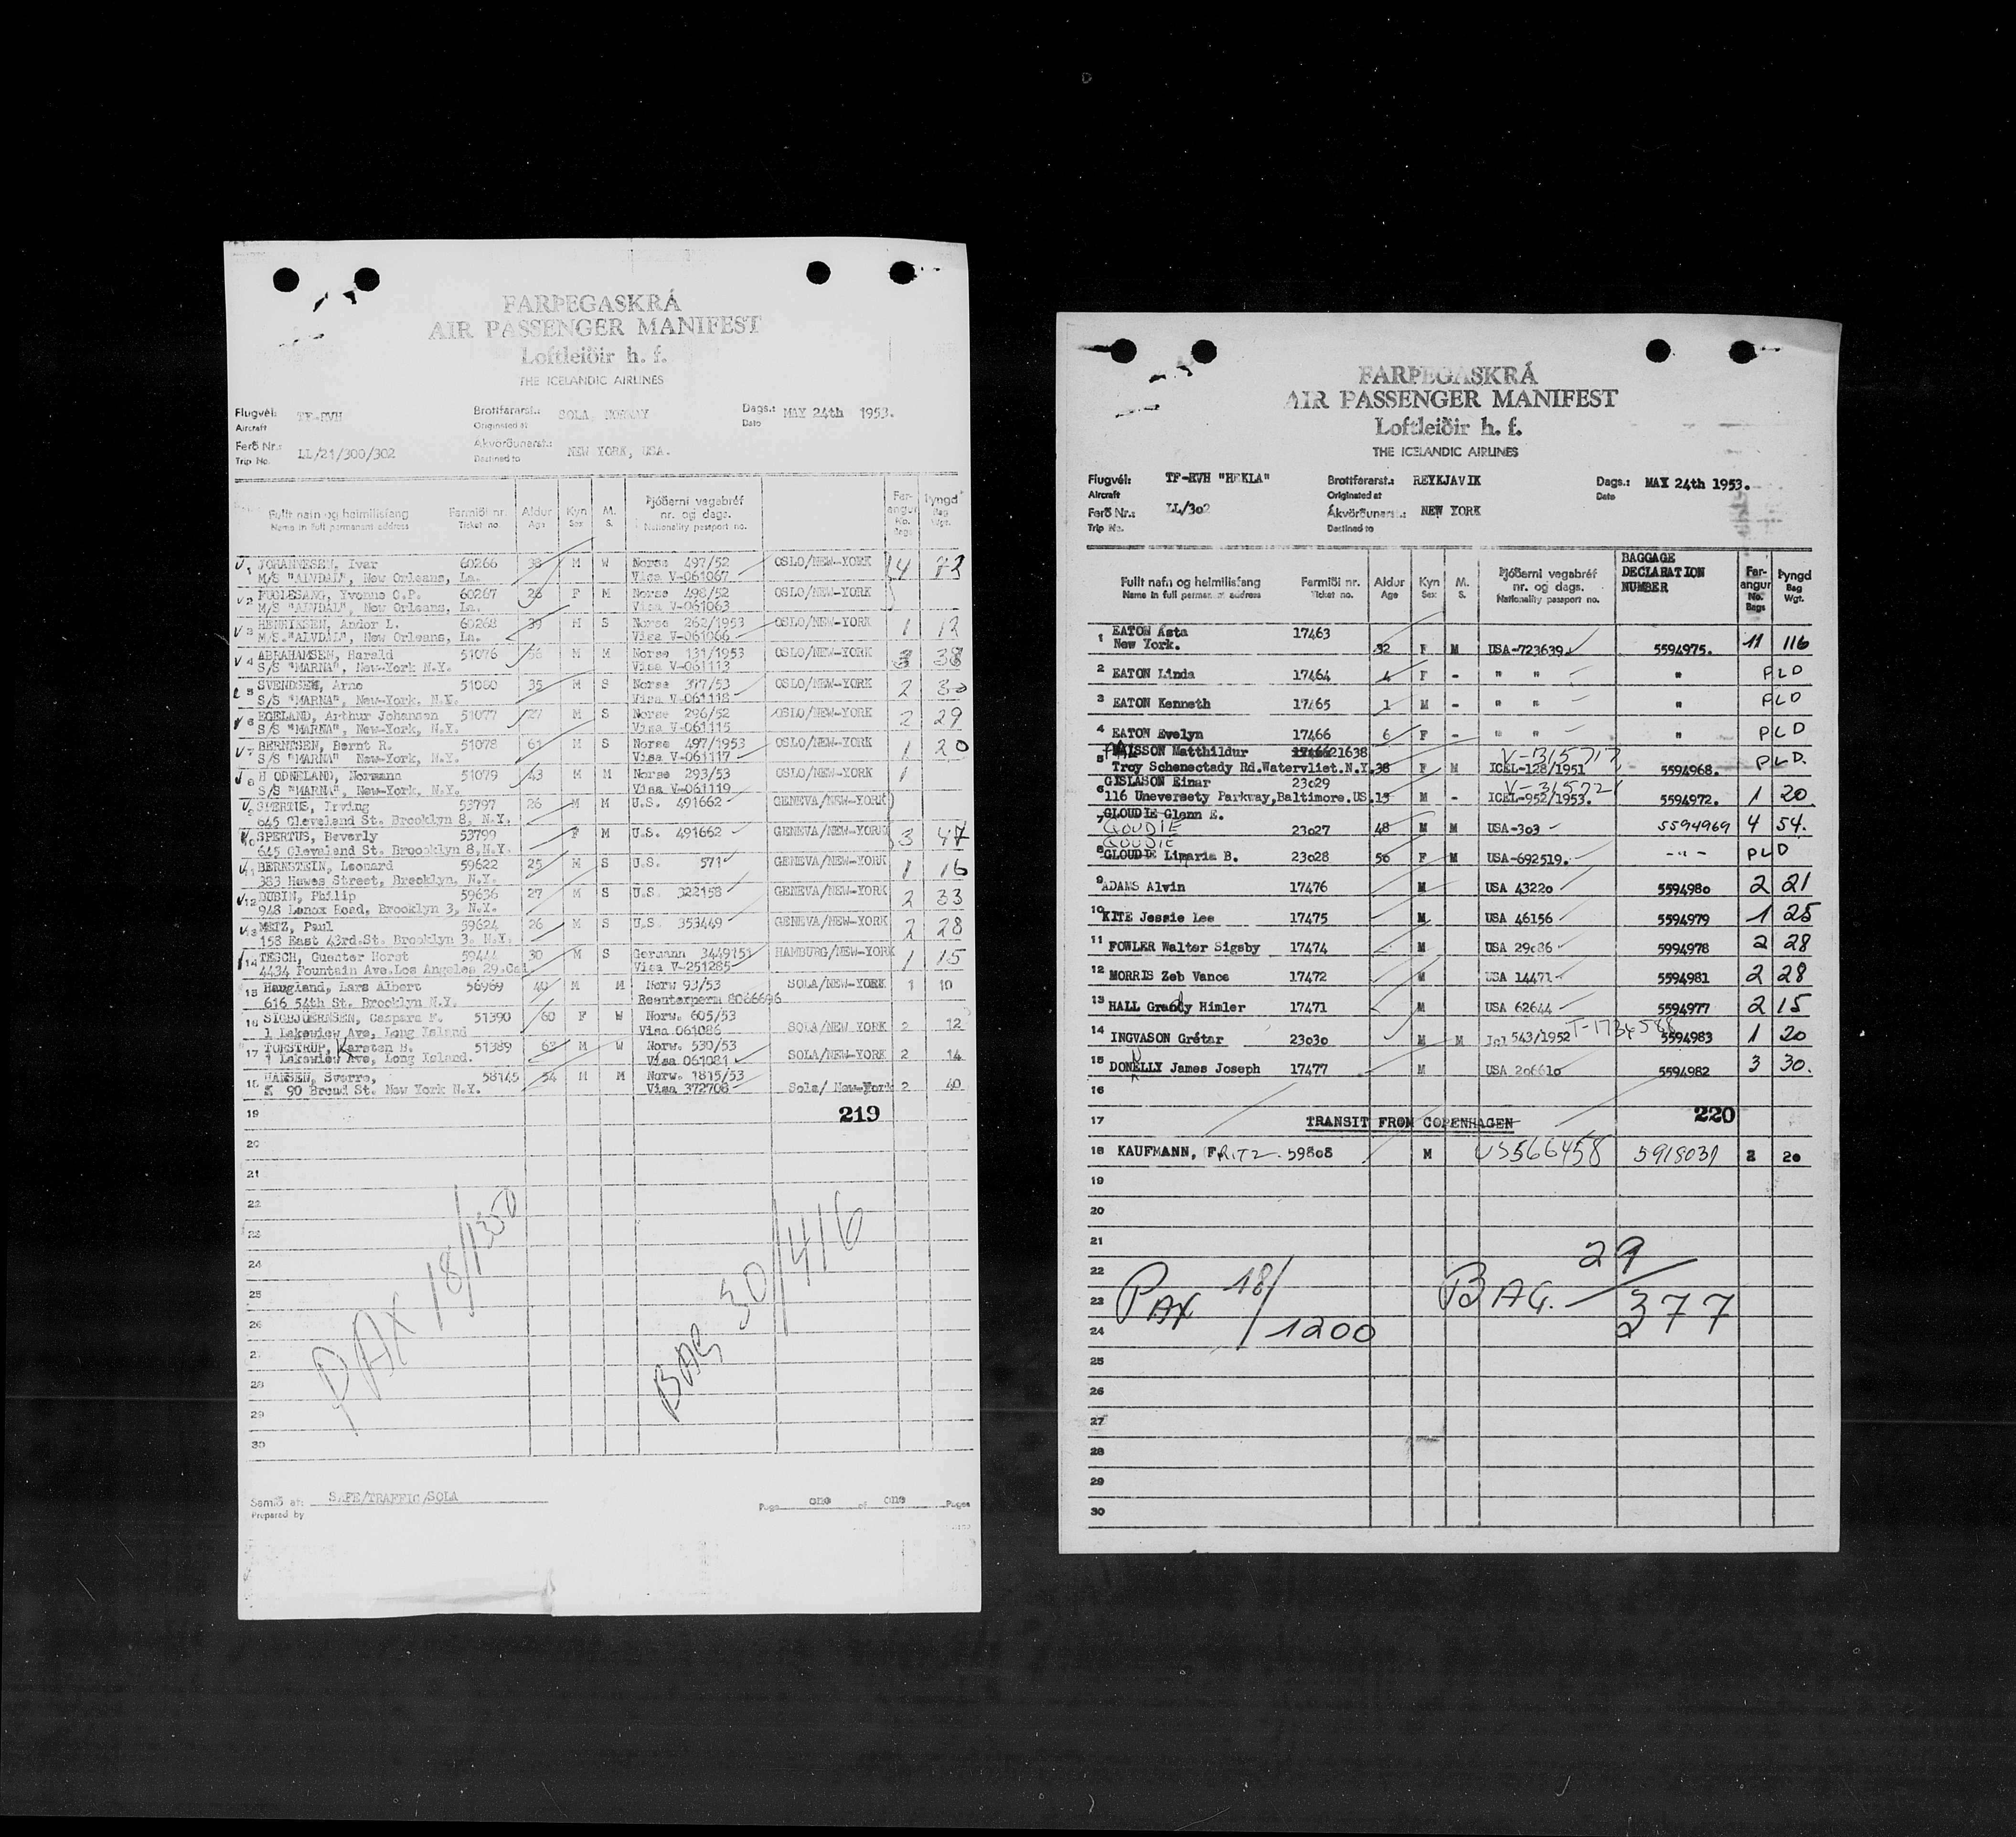 FARÞEGASKRÁ
AIR PASSENGER MANIFEST
Loftleiðir h. f.
THE ICELANDIC AIRLINES
Flugvél: TF-RVH Brottfararst.: SOLA, NORWAY Dags.: MAY 24th 1953.
Aircraft Originated at Date
Ferð Nr.: LL/21/300/302 Ákvörðunarst.: NEW YORK, USA.
Trip No. Destined to
Fullt nafn og heimilisfang Farmiði nr. Aldur Kyn M. Þjóðerni vegabréf Far- Þyngd
Name in full permanent address Ticket no. Age Sex S. nr. og dags. angur Bag
Nationality passport no. No. Bags Wgt.
1 JOHANNESEN, Ivar 60266 38 M W Norse 497/52 OSLO/NEW-YORK 4 72
M/S "ALVDAL", New Orleans, La. Visa V-061067
2 FUGLESANG, Yvonne O.P. 60267 26 F M Norse 498/52 OSLO/NEW-YORK
M/S "ALVDAL", New Orleans, La. Visa V-061063
3 HENRIKSEN, Andor L. 60268 39 M S Norse 262/1953 OSLO/NEW-YORK 1 12
M/S."ALVDAL", New Orleans, La. Visa V-061066
4 ABRAHAMSEN, Harald 51076 56 M M Norse 131/1953 OSLO/NEW-YORK 3 38
S/S "MARNA", New-York N.Y. Visa V-061113
5 SVENDSEN, Arno 51080 35 M S Norse 377/53 OSLO/NEW-YORK 2 30
S/S "MARNA", New-York, N.Y. Visa V-061118
6 EGELAND, Arthur Johansen 51077 27 M S Norse 296/52 OSLO/NEW-YORK 2 29
S/S "MARNA", New-York, N.Y. Visa V-061115
7 BERNTSEN, Bernt R. 51078 61 M S Norse 497/1953 OSLO/NEW-YORK 1 20
S/S "MARNA" New-York, N.Y. Visa V-061117
8 H ODNELAND, Normann 51079 43 M M Norse 293/53 OSLO/NEW-YORK 1
S/S "MARNA", New-York, N.Y. Visa V-061119
9 SPERTUS, Irving 53797 26 M M U.S. 491662 GENEVA/NEW-YORK
645 Cleveland St. Brooklyn 8, N.Y.
10 SPERTUS, Beverly 53799 F M U.S. 491662 GENEVA/NEW-YORK 3 47
645 Cleveland St. Broooklyn 8,N.Y.
11 BERNSTEIN, Leonard 59622 25 M S U.S. 571 GENEVA/NEW-YORK 1 16
383 Hewes Street, Brooklyn, N.Y.
12 DUBIN, Philip 59636 27 M S U.S. 322158 GENEVA/NEW-YORK 2 33
948 Lenox Road, Brooklyn 3, N.Y.
13 METZ, Paul 59624 26 M S U.S. 353449 GENEVA/NEW-YORK 2 28
158 East 43rd.St. Brooklyn 3. N.Y.
14 TESCH, Guenter Horst 59444 30 M S Germann 3449151 HAMBURG/NEW-YORK 1 15
4434 Fountain Ave.Los Angeles 29.Cal Visa V-251285
15 Haugland, Lars Albert 56969 40 M M Norw 93/53 SOLA/NEW-YORK 1 10
616 54th St. Brooklyn N.Y. Reenterperm 8066696
16 SIGBJOERNSEN, Caspara F. 51390 60 F W Norw. 605/53
1 Lakewiew Ave, Long Island Visa 061086 SOLA/NEW YORK 2 12
17 TORSTRUP, Karsten B. 51389 63 M W Norw. 530/53
1 Lakewiew Ave, Long Island. Visa 061081 SOLA/NEW-YORK 2 14
18 HANSEN, Sverre, 58145 54 M M Norw. 1815/53
90 Broad St. New York N.Y. Visa 372708 Sola/ New-York 2 40
19 219
20
21
22
23
24
25
26
27
28
29
30
PAX 18/1350 BAG 30/416
Samið af: SAFE/TRAFFIC/SOLA Page one of one Pages
Prepared by
FARÞEGASKRÁ
AIR PASSENGER MANIFEST
Loftleiðir h. f.
THE ICELANDIC AIRLINES
Flugvél: TF-RVH "HEKLA" Brottfararst.: REYKJAVIK Dags.: MAY 24th 1953.
Aircraft Originated at Date
Ferð Nr.: LL/302 Ákvörðunarst.: NEW YORK
Trip No. Destined to
Fullt nafn og heimilisfang Farmiði nr. Aldur Kyn M. Þjóðerni vegabréf BAGGAGE Far- Þyngd
Name in full permanent address Ticket no. Age Sex S. nr. og dags. DECLARATION angur Bag
Nationality passport no. NUMBER No. Bags Wgt.
1 EATON Ásta 17463
New York. 32 F M USA-723639. 5594975. 11 116
2 EATON Linda 17464 4 F - " " " PLD
3 EATON Kenneth 17465 1 M - " " " PLD
4 EATON Evelyn 17466 6 F - " " " PLD
5 Matthildur 21638 V-315717
Troy Schenectady Rd.Watervliet.N.Y. 38 F M ICEL-128/1951 5594968. PLD.
6 GISLASON Einar 23029 V-315721
116 Uneversety Parkway,Baltimore.US. 15 M - ICEL-952/1953. 5594972. 1 20
7 GLOUDIE Glenn E.
GOUDIE 23027 48 M M USA-303 5594969 4 54.
GOUDIE
8 GLOUDIE Limaria B. 23028 50 F M USA-692519. -"- PLD
9 ADAMS Alvin 17476 M USA 43220 5594980 2 21
10 KITE Jessie Lee 17475 M USA 46156 5594979 1 25
11 FOWLER Walter Sigsby 17474 M USA 29086 5994978 2 28
12 MORRIS Zeb Vance 17472 M USA 14471 5594981 2 28
13 HALL Grandy Himler 17471 M USA 62644 5594977 2 15
14 INGVASON Grétar 23030 M M Icl 543/1952 T-1734588 5594983 1 20
15 DONELLY James Joseph 17477 M USA 206610 5594982 3 30.
16
17 TRANSIT FROM COPENHAGEN 220
18 KAUFMANN, FRITZ. 59808 M US566458 5918031 2 20
19
20
21
22
23
24
25
26
27
28
29
30
PAX 18/1200 BAG. 29/377